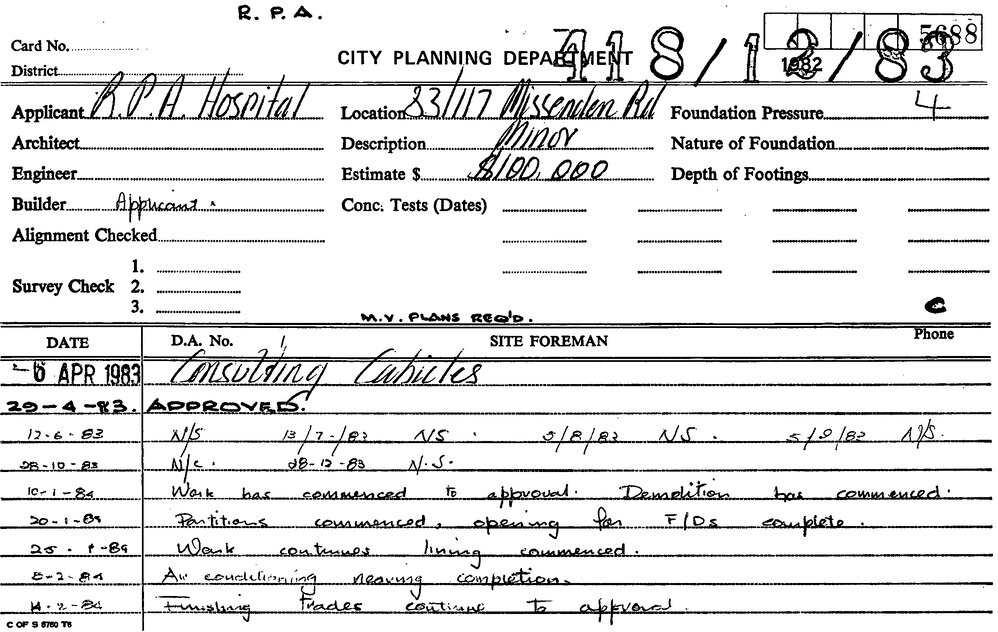 R. P. A.
5688
Card No.
CITY PLANNING DEPARTMENT
418/12/83
1982
District
Applicant R.P.A. Hospital Location 83/117 Missenden Rd Foundation Pressure 4
Architect Description Minor Nature of Foundation
Engineer Estimate $ $100,000 Depth of Footings
Builder Applicant. Conc. Tests (Dates)
Alignment Checked
1.
Survey Check 2.
3.
M.V. PLANS REQ'D. C
DATE D.A. No. SITE FOREMAN Phone
-6 APR 1983 Consulting Cubicles
29-4-83. APPROVED.
12-6-83 N/S 13/7/83 N/S. 5/8/83 N/S. 5/9/83 N/S.
28-10-83 N/C. 28-12-83 N.S.
10-1-84 Work has commenced to approval. Demolition has commenced.
20-1-84 Partitions commenced, opening for F/Ds complete.
25-1-84 Work continues lining commenced.
8-2-84 Air conditioning nearing completion.
14-2-84 Finishing trades continue to approval.
C OF S 6760 T6